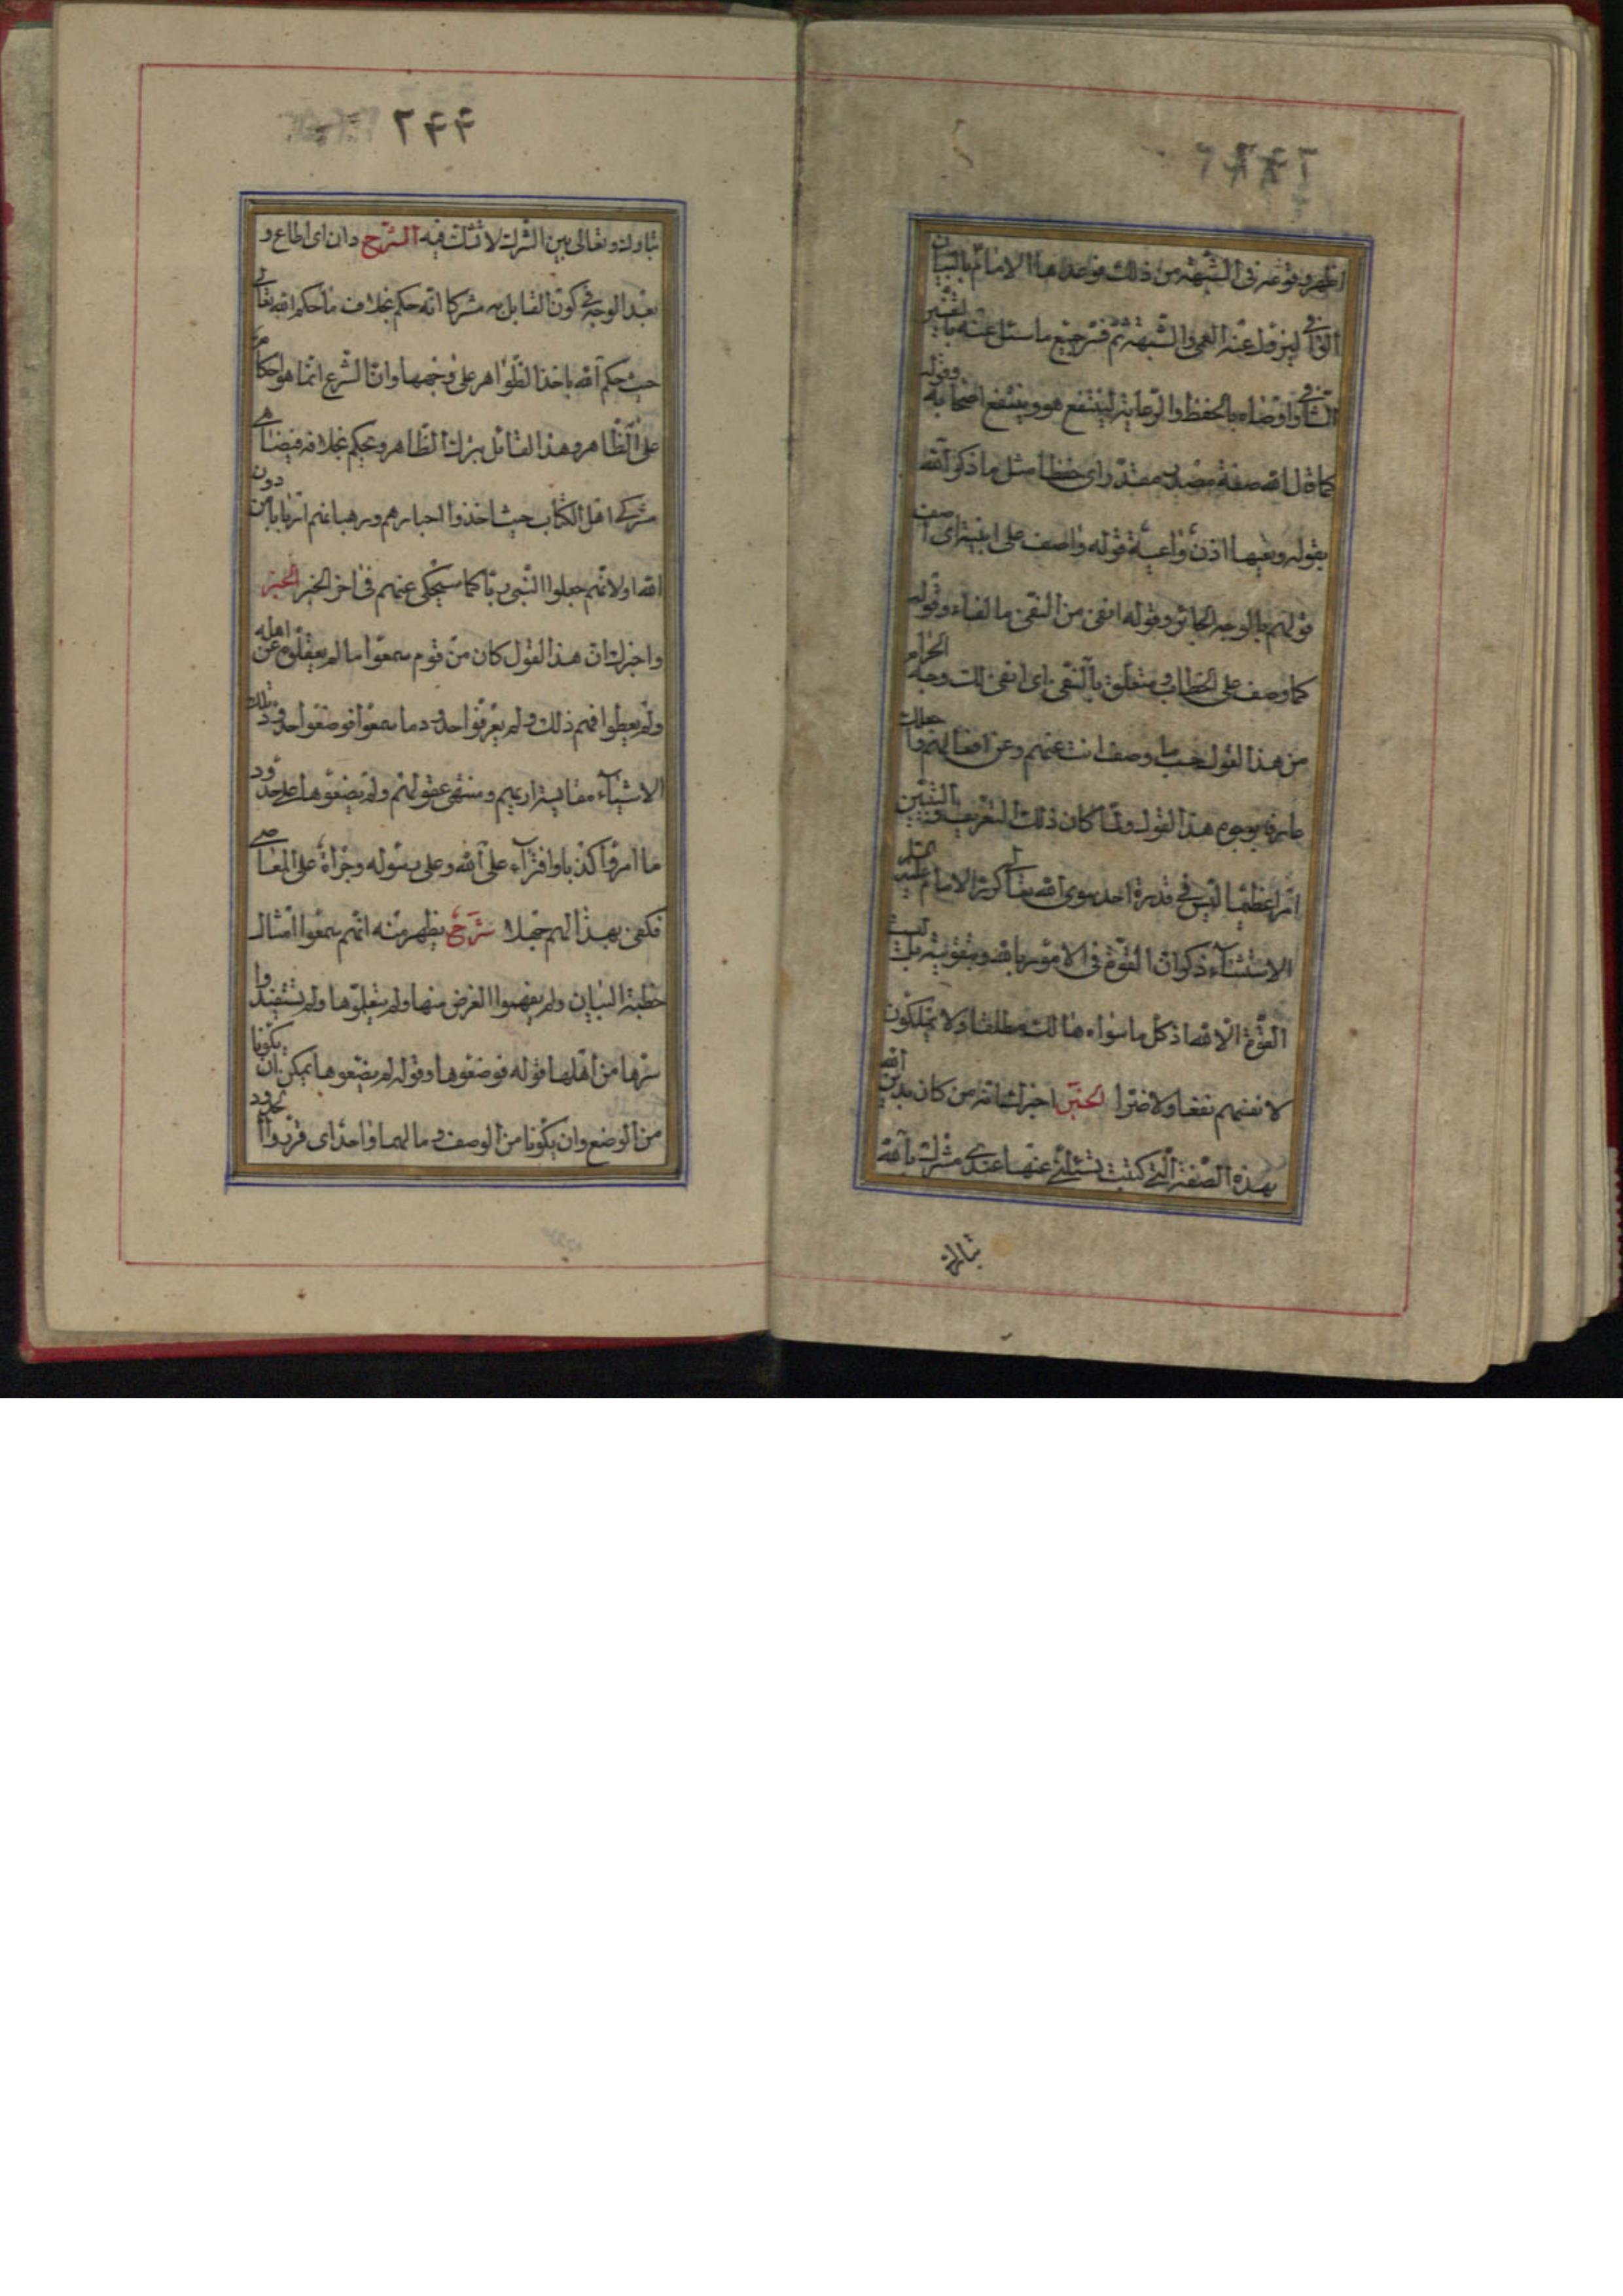 اظهره فوقعه في الشبهة من ذلك فوعدها الامام بالبيان
الوافي ليزول عنه العمى والشبهة ثم فسر جميع ما سئل عنه بالتفسير
الشافي واوصاه بالحفظ والرعاية لينتفع هو وينتفع اصحابه وقوله
كما قال الله صفة مصدر مقدر اى حفظا مثل ما ذكر الله
بقوله وتعيها اذن واعية قوله واصف على ابنية اى اصف
قولهم بالوجه الجائز وقوله انفى من النفى بالفاء وقوله
كما وصف على الخطاب متعلق بالنفى اى انفى لك وجه الحرام
من هذا القول حسب ما وصفت انت عنهم وعن افعالهم
عارفا بوجوه هذا القول ولما كان ذلك التعريف والتبيين
امرا عظيما ليس في قدرة احد سوى الله تعالى كرر الامام عليه
الاستثناء ذكر ان القوة في الامور بالله وبتقويته ليست
القوة الا لله اذ كل ما سواه هالك مطلقا ولا يملكون
لانفسهم نفعا ولا ضرا الخبر اخبرك انه من كان يدين الله
بهذه الصفة التى كتبت تسئلنى عنها عندى مشرك بالله
تبارك
٢٩٩
تبارك وتعالى بين الشرك لا شك فيه الشرح دان اى اطاع و
بعد الوجه في كون القايل به مشركا انه حكم بخلاف ما حكم الله تعالى
حيث حكم الله باخذ الظواهر على وجهها وان الشرع انما هو احكام
على الظاهر وهذا القائل بترك الظاهر ويحكم بخلافه فيضاهى
مشركى اهل الكتاب حيث اخذوا احبارهم ورهبانهم اربابا من دون
الله او لانهم جعلوا النبى ربا كما سيحكى عنهم في اخر الخبر الخبر
واخبرك ان هذا القول كان من قوم سمعوا ما لم يعقلوه عن اهله
ولم يعطوا فهم ذلك ولم يعرفوا حدود ما سمعوا فوضعوا حدود تلك
الاشياء مقايسة برايهم ومنتهى عقولهم ولم يضعوها على حدود
ما امروا كذبا وافتراء على الله وعلى رسوله وجراة على المعاصى
فكفى بهذا لهم جهلا شرح يظهر منه انهم سمعوا امثال
خطبة البيان ولم يفهموا الغرض منها ولم يتعلموها ولم يستفيدوا
سرها من اهلها قوله فوضعوها وقوله لم يضعوها يمكن ان يكونا
من الوضع وان يكونا من الوصف ومالهما واحد اى قرنوا الحدود